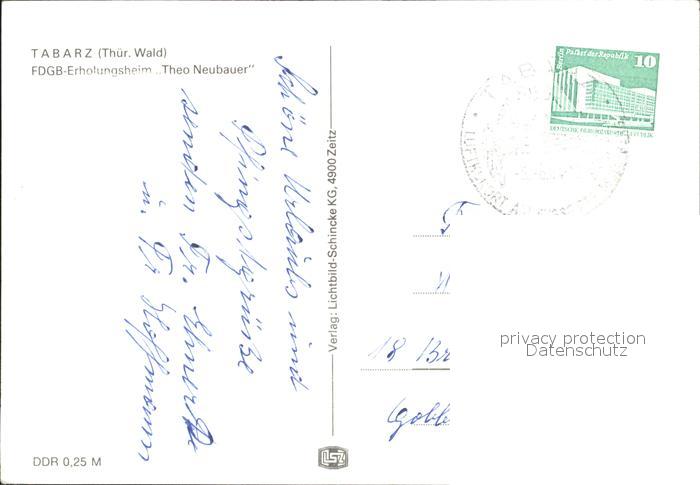 TABARZ (Thür. Wald)
FDGB-Erholungsheim „Theo Neubauer"
Schöne Urlaubs und
Pfingstgrüße
senden Fr.
u. Fr. Hoffmann
Verlag: Lichtbild-Schincke KG, 4900 Zeitz
DDR 0,25 M
Berlin Palast der Republik 10
DEUTSCHE DEMOKRATISCHE REPUBLIK
TABARZ
18 Br
privacy protection
Datenschutz